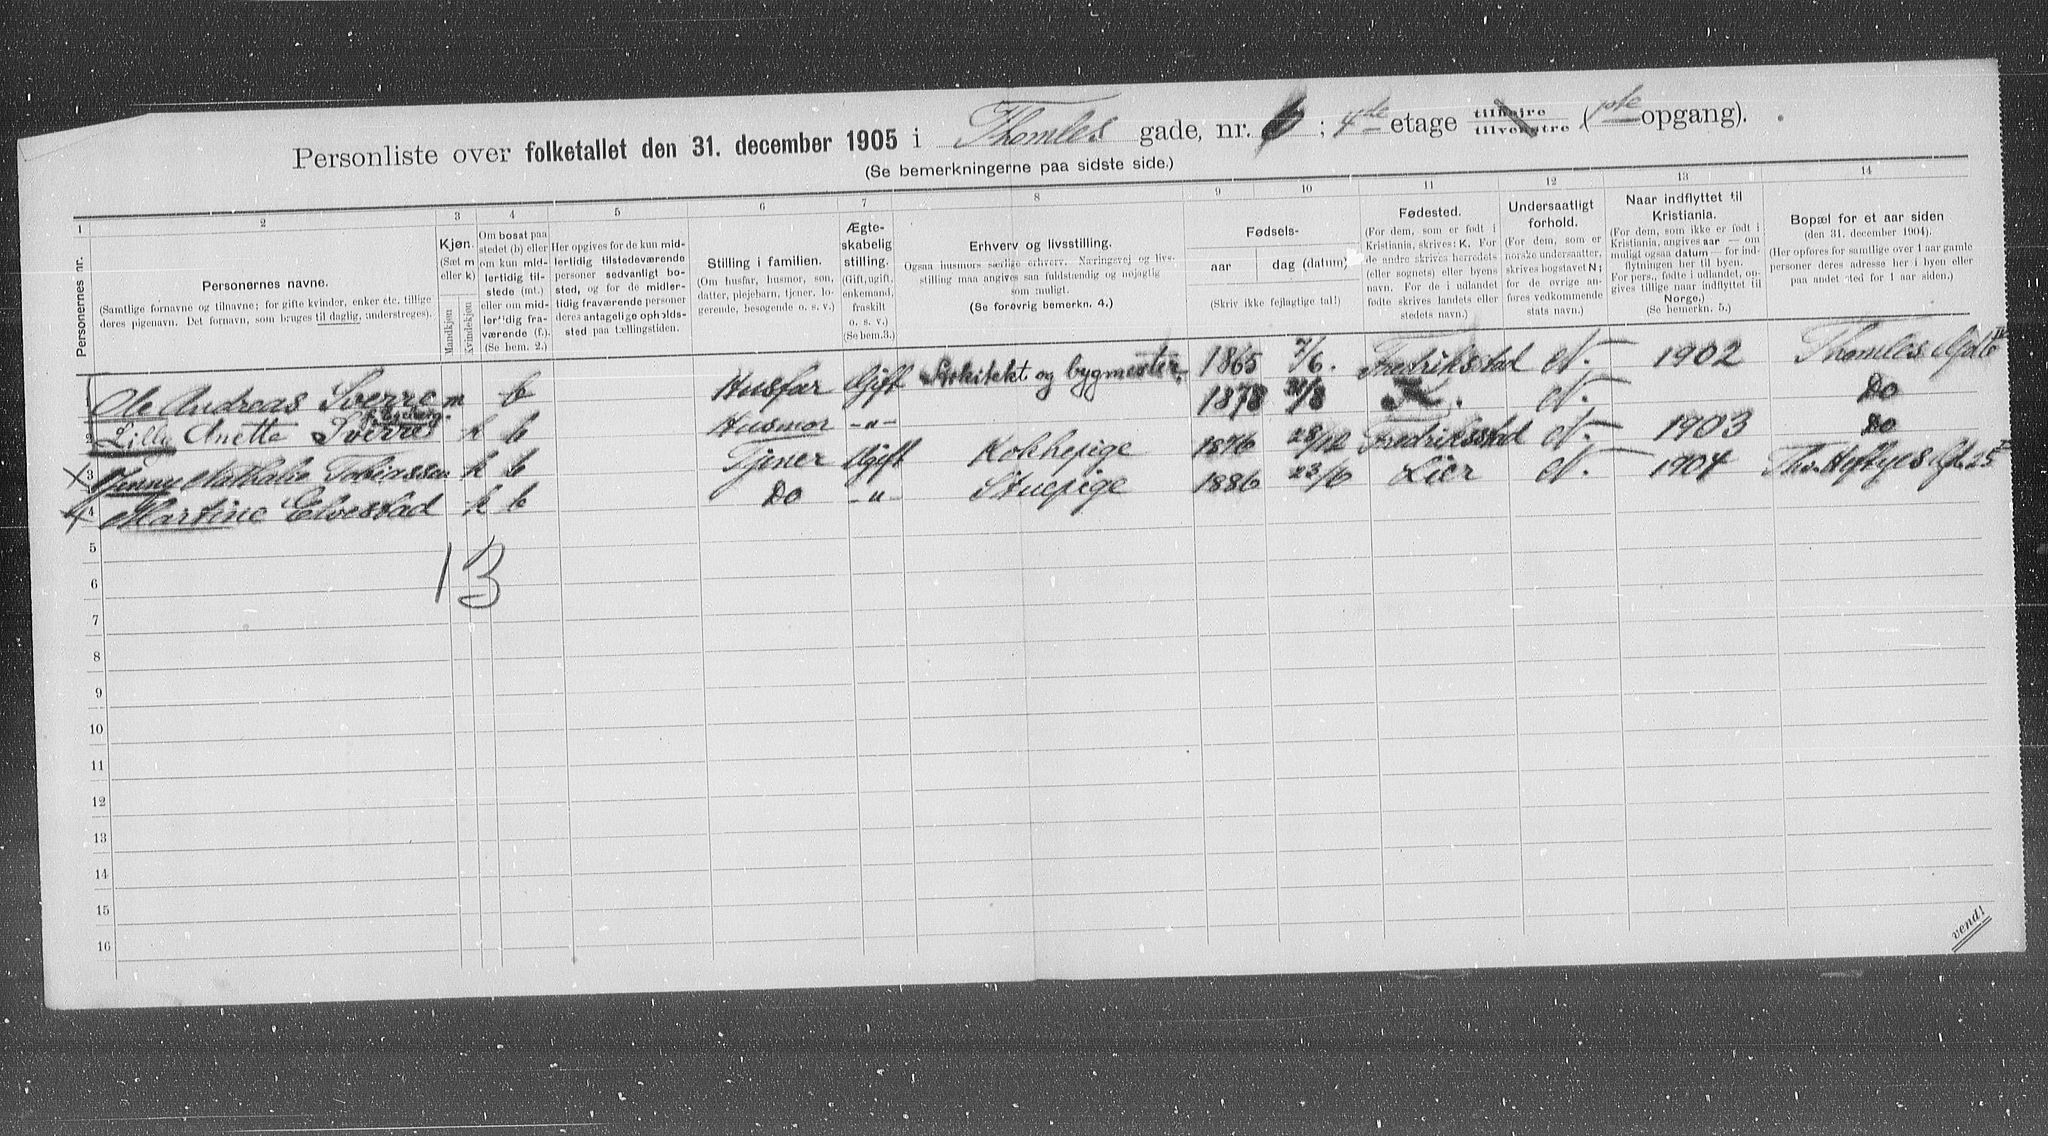 Personliste over folketallet den 31. december 1905 i Thomles gade, nr. 6 ; 4de etage tilhøire tilvenstre (1ste opgang).
(Se bemerkningerne paa sidste side.)
1 2 3 4 5 6 7 8 9 10 11 12 13 14
Personernes nr.
Personernes navne.
(Samtlige fornavne og tilnavne; for gifte kvinder, enker etc. tillige
deres pigenavn. Det fornavn, som bruges til daglig, understreges).
Kjøn.
(Sæt m
eller k)
Mandkjøn
Kvindekjøn
Om bosat paa
stedet (b) eller
om kun mid-
lertidig til-
stede (mt.)
eller om mid-
lertidig fra-
værende (f.).
(Se bem. 2.)
Her opgives for de kun mid-
lertidig tilstedeværende
personer sedvanligt bo-
sted, og for de midler-
tidig fraværende personer
deres antagelige opholds-
sted paa tællingstiden.
Stilling i familien.
(Om husfar, husmor, søn,
datter, plejebarn, tjener, lo-
gerende, besøgende o. s. v.)
Ægte-
skabelig
stilling.
(Gift, ugift,
enkemand,
fraskilt
o. s. v.)
(Se bem.3.)
Erhverv og livsstilling.
Ogsaa husmors særlige erhverv. Næringsvej og livs-
stilling maa angives saa fuldstændig og nøjagtig
som muligt.
(Se forøvrig bemerkn. 4.)
Fødsels-
aar
dag (datum)
(Skriv ikke fejlagtige tal!)
Fødested.
(For dem, som er født i
Kristiania, skrives: K. For
de andre skrives herredets
(eller sognets) eller byens
navn. For de i udlandet
fødte skrives landets eller
stedets navn.)
Undersaatligt
forhold.
(For dem, som er
norske undersaatter,
skrives bogstavet N;
for de øvrige an-
føres vedkommende
stats navn.)
Naar indflyttet til
Kristiania.
(For dem, som ikke er født i
Kristiania, angives aar — om
muligt ogsaa datum — for ind-
flytningen her til byen.
For pers., fødte i udlandet, on-
gives tillige naar indflyttet til
Norge.)
(Se bemerkn. 5.)
Bopæl for et aar siden
(den 31. december 1904).
(Her opføres for samtlige over 1 aar gamle
personer deres adresse her i byen eller
paa andet sted for 1 aar siden.)
1 Ole Andreas Sverre m b Husfar Gift Arkitekt og bygmester. 1865 7/6. Fredriksstad N. 1902 Thomles Gd 6 IV
2 Lilly Anette Sverre k b Husmor -"- 1878 31/8 K. N. Do
3 Jenny Nathalie Tobiassen k b Tjener Ugift Kokkepige 1876 28/12 Fredriksstad N. 1903 Do
4 Martine Elvestad k b Do -"- Stuepige 1886 23/6 Lier N. 1904 Ths. Heftyes Gd. 25 II
5
1 3
6
7
8
9
10
11
12
13
14
15
16
vend!